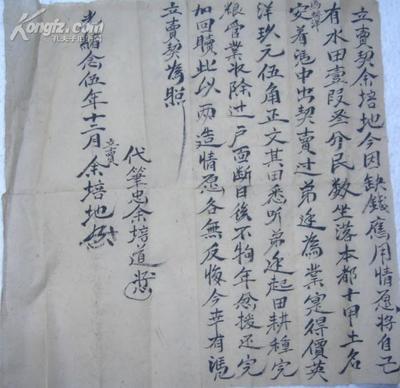 立賣契余培地今因缺錢應用情愿將自己
有水田壹段叁分民數坐落本都十甲土名
馬柳洋
安着憑中出契賣过弟逵為業寔得價英
洋玖元伍角正文其田悉听弟逵起田耕種完
粮管業收除过户面断日後不拘年怂援还完
加回贖此以兩造情愿各無反悔今幸有憑
立賣契為照
代筆忠余培道
光緒念伍年十二月立賣余培地
Kongfz.com
孔夫子旧书网